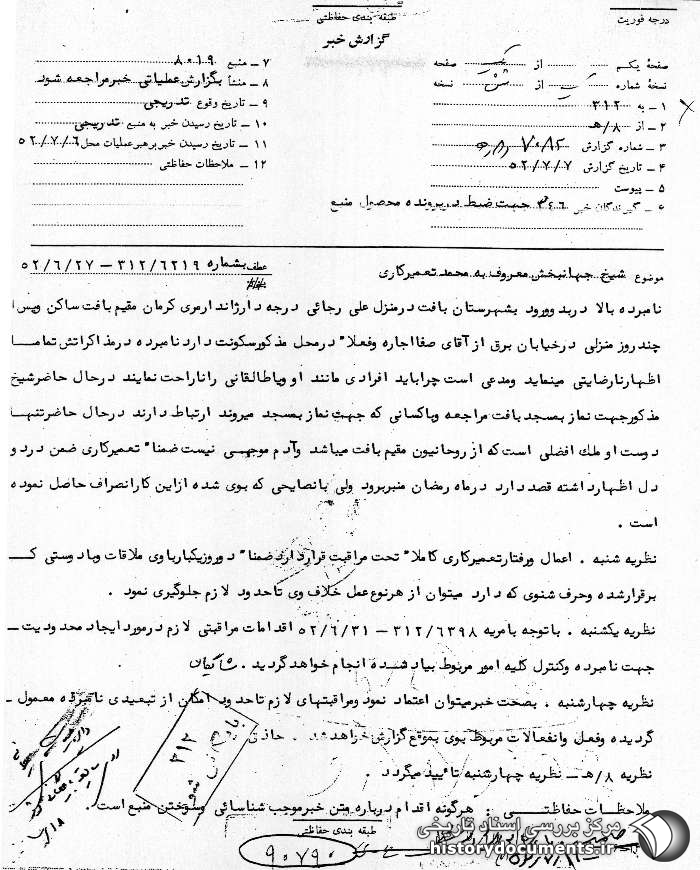 درجه فوریت
طبقه بندی حفاظتی
گزارش خبر
صفحهٔ یکم از یک صفحه
نسخهٔ شماره یک از نسخه
۱ ـ به ۳۱۲
۲ ـ از ۸/هـ
۳ ـ شماره گزارش ۷۰۸۲
۴ ـ تاریخ گزارش ۵۲/۷/۷
۵ ـ پیوست
۶ ـ گیرندگان خبر ۳۴۶ جهت ضبط در پرونده محصول منبع
۷ ـ منبع ۸۰۱۹
۸ ـ منشأ بگزارش عملیاتی خبر مراجعه شود
۹ ـ تاریخ وقوع تدریجی
۱۰ ـ تاریخ رسیدن خبر به منبع تدریجی
۱۱ ـ تاریخ رسیدن خبر برهبر عملیات محل ۵۲/۷/۶
۱۲ ـ ملاحظات حفاظتی
موضوع شیخ جهانبخش معروف به محمد تعمیرکاری
عطف بشماره ۳۱۲/۶۲۱۹ – ۵۲/۶/۲۷
نامبرده بالا در بدو ورود بشهرستان بافت در منزل علی رجائی درجه دار ژاندارمری کرمان مقیم بافت ساکن و پس از
چند روز منزلی در خیابان برق از آقای صفا اجاره و فعلا" در محل مذکور سکونت دارد نامبرده در مذاکراتش تماما
اظهار نارضایتی مینماید و مدعی است چرا باید افرادی مانند او و یا طالقانی را ناراحت نمایند در حال حاضر شیخ
مذکور جهت نماز بمسجد بافت مراجعه و با کسانی که جهت نماز بمسجد میروند ارتباط دارند در حال حاضر تنها
دوست او ملك افضلی است که از روحانیون مقیم بافت میباشد و آدم موجهی نیست ضمنا" تعمیرکاری ضمن درد و
دل اظهار داشته قصد دارد در ماه رمضان منبر برود ولی با نصایحی که بوی شده از این کار انصراف حاصل نموده
است .
نظریه شنبه . اعمال و رفتار تعمیرکاری کاملا" تحت مراقبت قرار دارد ضمنا" دو روز یکبار با وی ملاقات و با دوستی کـــه
برقرار شده و حرف شنوی که دارد میتوان از هر نوع عمل خلاف وی تا حدود لازم جلوگیری نمود .
نظریه یکشنبه . با توجه بامریه ۳۱۲/۶۳۹۸ – ۵۲/۶/۳۱ اقدامات مراقبتی لازم در مورد ایجاد محدودیت ـ
جهت نامبرده و کنترل کلیه امور مربوط بیاد شده انجام خواهد گردید .
نظریه چهارشنبه . بصحت خبر میتوان اعتماد نمود و مراقبتهای لازم تا حدود امکان از تبعیدی نامبرده معمول ـ
گردیده و فعل و انفعالات مربوط بوی بموقع گزارش خواهد شد .
نظریه ۸/هـ ـ نظریه چهارشنبه تأیید میگردد .
ملاحظات حفاظتـــی . هرگونه اقدام درباره متن خبر موجب شناسائی و سوختن منبع است .
۳۱۲
طبقه بندی حفاظتی
۹۰۷۹۰
مرکز بررسی اسناد تاریخی
historydocuments.ir